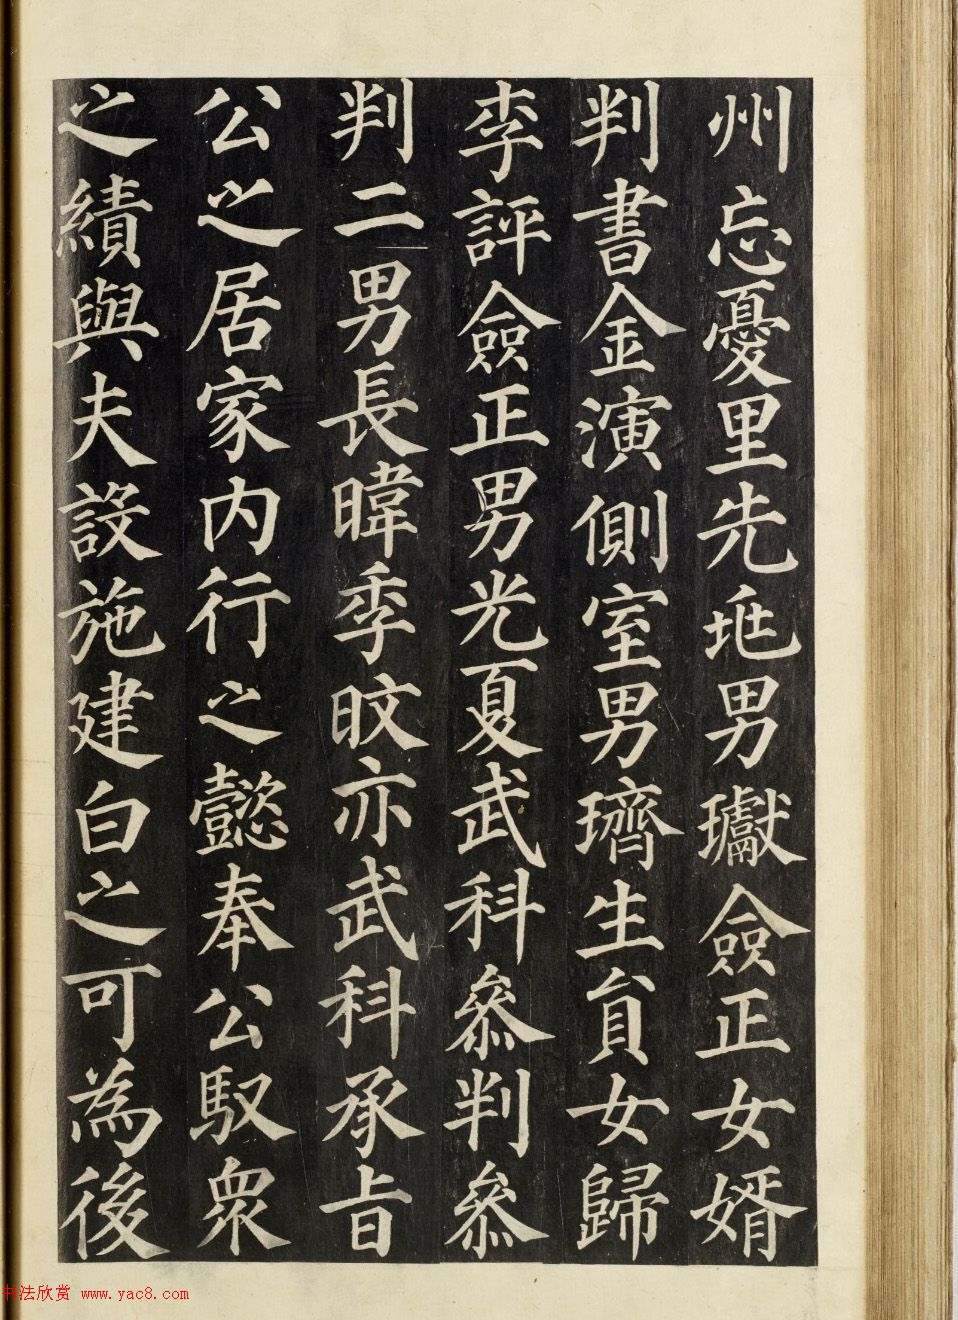 州忘憂里先垗男瓛僉正女婿
判書金演側室男璾生負女歸
李評僉正男光夏武科叅判叅
判二男長暐季旼亦武科承旨
公之居家内行之懿奉公馭衆
之績與夫設施建白之可為後
书法欣赏 www.yac8.com